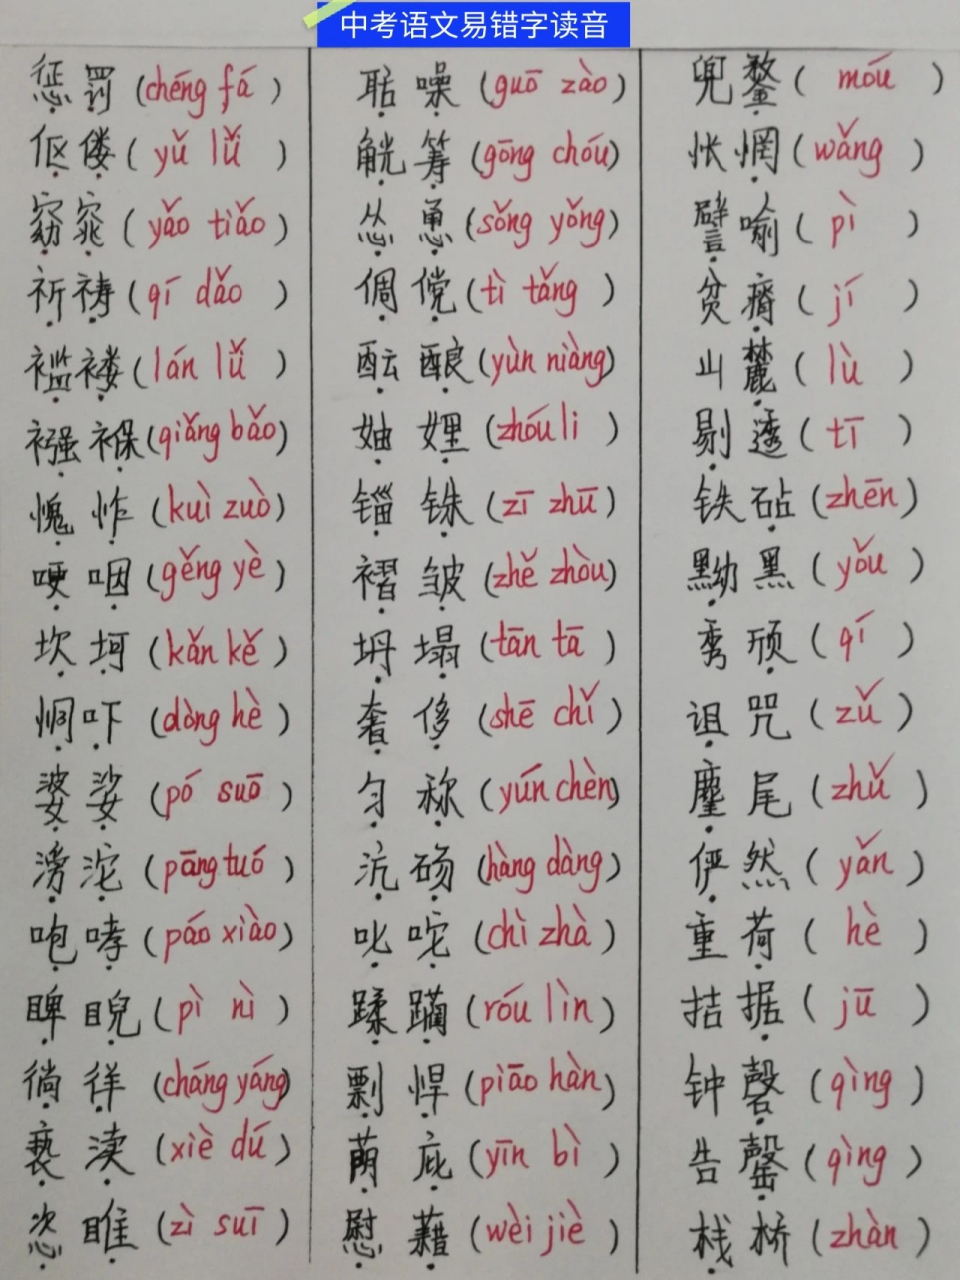 中考语文易错字读音
惩罚(chéng fá)
伛偻(yǔ lǚ)
窈窕(yǎo tiǎo)
祈祷(qí dǎo)
褴褛(lán lǚ)
襁褓(qiǎng bǎo)
愧怍(kuì zuò)
哽咽(gěng yè)
坎坷(kǎn kě)
恫吓(dòng hè)
婆娑(pó suō)
滂沱(pāng tuó)
咆哮(páo xiào)
睥睨(pì nì)
徜徉(cháng yáng)
亵渎(xiè dú)
恣睢(zì suī)
聒噪(guō zào)
觥筹(gōng chóu)
怂恿(sǒng yǒng)
倜傥(tì tǎng)
酝酿(yùn niàng)
妯娌(zhóu li)
锱铢(zī zhū)
褶皱(zhě zhòu)
坍塌(tān tā)
奢侈(shē chǐ)
匀称(yún chèn)
沆砀(hàng dàng)
叱咤(chì zhà)
蹂躏(róu lìn)
剽悍(piāo hàn)
荫庇(yīn bì)
慰藉(wèi jiè)
兜鍪(móu)
怅惘(wǎng)
譬喻(pì)
贫瘠(jí)
山麓(lù)
剔透(tī)
铁砧(zhēn)
黝黑(yǒu)
秀颀(qí)
诅咒(zǔ)
麈尾(zhǔ)
俨然(yǎn)
重荷(hè)
拮据(jū)
钟磬(qìng)
告罄(qìng)
栈桥(zhàn)